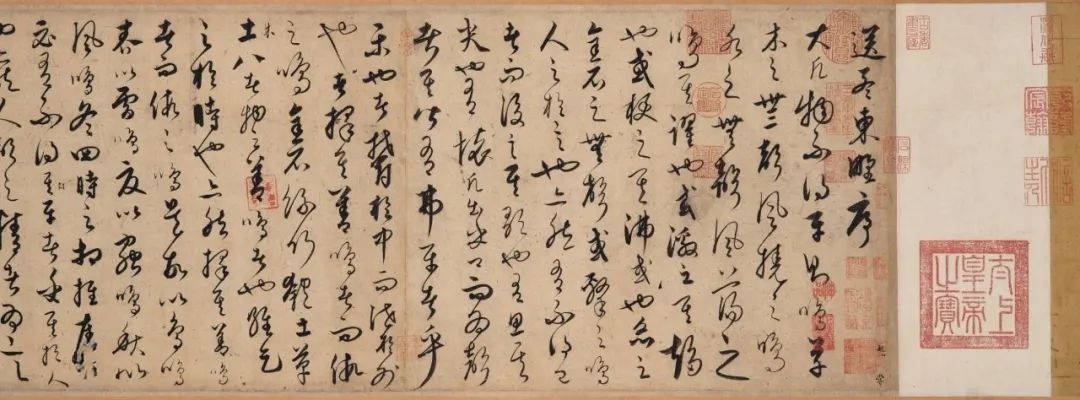 太上皇帝之寶
送孟東野序
大凡物不得平則鳴草
木之無聲風撓之鳴
水之無聲風蕩之
鳴其躍也或激之其趨
也或梗之其沸或也炙之
金石之無聲或擊之鳴
人之於言也亦然有不得已
者而後言其歌也有思其
哭也有懷凡出乎口而為聲
者其皆有弗平者乎
樂也者鬱於中而泄於外
也者擇其善鳴者而假
之鳴金石絲竹匏土革
木八者物之善鳴者也維天
之於時也亦然擇其善鳴
者而假之鳴是故以鳥鳴
春以雷鳴夏以蟲鳴秋以
風鳴冬四時之相推敓
必有不得其平者乎其於人
也亦然人聲之精者為言